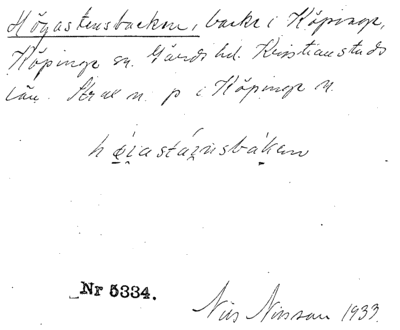 Högastensbacken, backe i Köpinge,
Köpinge sn. Gärds hd. Kristianstads
län. Strax n. p i Köpinge N.
høi̯astáɪnsbákan
Nr 5334.
Nils Nilsson 1933